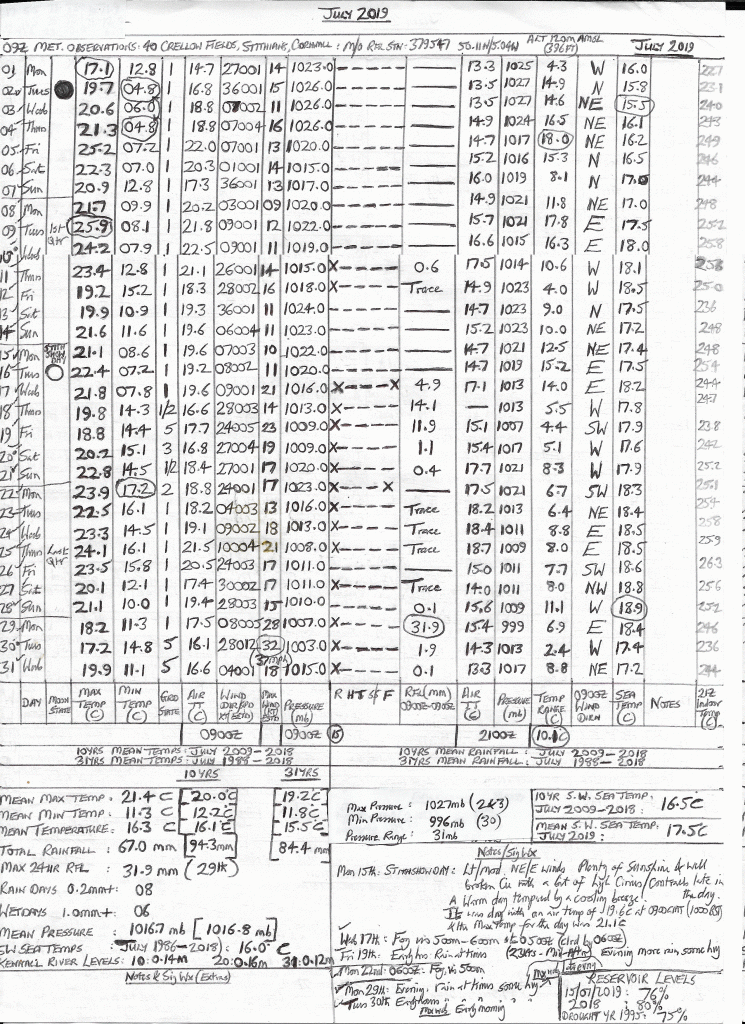 JULY 2019
09Z MET. OBSERVATIONS: 40 CRELLOW FIELDS, STITHIANS, CORNWALL: M/O RFL STN: 379547 50.11N/5.04W ALT 120m AMSL (396FT) JULY 2019
01 Mon 17.1 12.8 1 14.7 27001 14 1023.0 ----- — 13.3 1025 4.3 W 16.0 227
02 Tues 19.7 04.8 1 16.8 36001 15 1026.0 ----- — 13.5 1027 14.9 N 15.8 231
03 Wed 20.6 06.0 1 18.8 07002 11 1026.0 ----- — 13.5 1027 14.6 NE 15.5 240
04 Thurs 21.3 04.8 1 18.8 07004 16 1026.0 ----- — 14.9 1024 16.5 NE 16.1 243
05 Fri 25.2 07.2 1 22.0 07001 13 1020.0 ----- — 14.7 1017 18.0 NE 16.2 249
06 Sat 22.3 07.0 1 20.3 01001 14 1015.0 ----- — 15.2 1016 15.3 N 16.5 246
07 Sun 20.9 12.8 1 17.3 36001 13 1017.0 ----- — 16.0 1019 8.1 N 17.0 244
08 Mon 21.7 09.9 1 20.2 03001 09 1020.0 ----- — 14.9 1021 11.8 NE 17.0 248
09 Tues 1st Qtr 25.9 08.1 1 21.8 09001 12 1022.0 ----- — 15.7 1021 17.8 E 17.5 252
10 Wed 24.2 07.9 1 22.5 09001 11 1019.0 ----- — 16.6 1015 16.3 E 18.0 258
11 Thurs 23.4 12.8 1 21.1 26001 14 1015.0 X---- 0.6 17.5 1014 10.6 W 18.1 258
12 Fri 19.2 15.2 1 18.3 28002 16 1018.0 X---- Trace 14.9 1023 4.0 W 18.5 250
13 Sat 19.9 10.9 1 19.3 36001 11 1024.0 ----- — 14.7 1023 9.0 N 17.5 236
14 Sun 21.6 11.6 1 19.6 06004 11 1023.0 ----- — 15.2 1023 10.0 NE 17.2 248
15 Mon STITH SHOW DAY 21.1 08.6 1 19.6 07003 10 1022.0 ----- — 14.7 1021 12.5 NE 17.4 248
16 Tues 22.4 07.2 1 19.2 08002 11 1020.0 ----- — 14.7 1019 15.2 E 17.5 254
17 Wed 21.8 07.8 1 19.6 09001 21 1016.0 X---X 4.9 17.1 1013 14.0 E 18.2 244
18 Thurs 19.8 14.3 1/2 16.6 28003 14 1013.0 X---- 14.1 — 1013 5.5 W 17.8 247
19 Fri 18.8 14.4 5 17.7 24005 23 1009.0 X---- 11.9 15.1 1007 4.4 SW 17.9 23.8
20 Sat 20.2 15.1 3 16.8 27004 19 1009.0 X---- 1.1 15.4 1017 5.1 W 17.6 242
21 Sun 22.8 14.5 1/2 18.4 27001 17 1020.0 X---- 0.4 17.7 1021 8.3 W 17.9 25.2
22 Mon 23.9 17.2 2 18.8 24001 17 1023.0 X---X — 17.5 1021 6.7 SW 18.3 25.1
23 Tues 22.5 16.1 1 18.2 04003 13 1016.0 X---- Trace 18.2 1013 6.4 NE 18.4 254
24 Wed 23.3 14.5 1 19.1 09002 18 1013.0 X---- Trace 18.4 1011 8.8 E 18.5 258
25 Thurs Last Qtr 24.1 16.1 1 21.5 10004 21 1008.0 X---- Trace 18.7 1009 8.0 E 18.5 259
26 Fri 23.5 15.8 1 20.5 24003 17 1011.0 ----- — 15.0 1011 7.7 SW 18.6 263
27 Sat 20.1 12.1 1 17.4 30002 17 1011.0 X---- Trace 14.0 1011 8.0 NW 18.8 256
28 Sun 21.1 10.0 1 19.4 28003 15 1010.0 ----- 0.1 15.6 1009 11.1 W 18.9 252
29 Mon 18.2 11.3 1 17.5 08005 28 1007.0 X---- 31.9 15.4 999 6.9 E 18.4 246
30 Tues 17.2 14.8 5 16.1 28012 32 (37mph) 1003.0 X---- 1.9 14.3 1013 2.4 W 17.4 236
31 Wed 19.9 11.1 5 16.6 04001 18 1015.0 X---- 0.1 13.3 1017 8.8 NE 17.2 244
DAY MOON STATE MAX TEMP (C) MIN TEMP (C) GRD STATE AIR TT (C) WIND MAX WIND PRESSURE (mb) R H T S F RFL (mm) 0900Z-0900Z AIR TT (C) PRESSURE (mb) TEMP RANGE (C) 0900Z WIND DIRN SEA TEMP (C) NOTES 21Z Indoor Temp (C)
0900Z 0900Z 15 2100Z 10.1C
10YRS MEAN TEMPS: JULY 2009-2018 10YRS MEAN RAINFALL: JULY 2009-2018
31YRS MEAN TEMPS: JULY 1988-2018 31YRS MEAN RAINFALL: JULY 1988-2018
10YRS 31YRS
MEAN MAX TEMP: 21.4 C [20.0°C] [19.2°C]
MEAN MIN TEMP: 11.3 C [12.2°C] [11.8°C]
MEAN TEMPERATURE: 16.3 C [16.1°C] [15.5°C]
TOTAL RAINFALL: 67.0 mm [94.3mm] [84.4mm]
MAX 24HR RFL: 31.9 mm (29th)
RAIN DAYS 0.2mm+: 08
WETDAYS 1.0mm+: 06
MEAN PRESSURE: 1016.7 mb [1016.8 mb]
SW SEA TEMPS: JULY 1986-2018: 16.0° C
KENNALL RIVER LEVELS: 10: 0.14m 20: 0.16m 31: 0.12m
Notes & Sig Wx (Extras)
Max Pressure: 1027mb (2&3)
Min Pressure: 996mb (30)
Pressure Range: 31mb
10YR S.W. SEA TEMP: JULY 2009-2018: 16.5°C
MEAN S.W. SEA TEMP: JULY 2019: 17.5°C
Notes/Sig Wx
Mon 15th: STITHIANS SHOW DAY: Lt/mod. NE/E winds. Plenty of sunshine & well
broken Cu with a bit of high Cirrus/Contrails late in the day.
A warm day tempered by a cooling breeze.
It was dry with an air temp of 19.6C at 0900GMT (1000 BST)
& the Max temp for the day was 21.1C
Wed 17th: Fog vis 500m-600m at 0500Z (clrd by 0600Z)
Fri 19th: Early hrs Rain at times (23Hrs - Mid-Aftn) Evening more rain, some hvy
Mon 22nd: 0600Z: Fog, vis 500m
Mon 29th: Evening: rain at times some hvy
Tues 30th: Early hours " " Early morning " "
RESERVOIR LEVELS
15/07/2019: 76%
2018: 80%
DROUGHT YR 1995: 75%